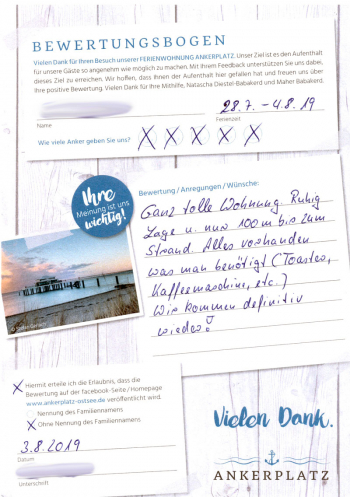 BEWERTUNGSBOGEN
Vielen Dank für Ihren Besuch unserer FERIENWOHNUNG ANKERPLATZ. Unser Ziel ist es den Aufenthalt
für unsere Gäste so angenehm wie möglich zu machen. Mit Ihrem Feedback unterstützen Sie uns dabei,
dieses Ziel zu erreichen. Wir hoffen, dass Ihnen der Aufenthalt hier gefallen hat und freuen uns über
Ihre positive Bewertung. Vielen Dank für Ihre Mithilfe, Natascha Diestel-Babakerd und Maher Babakerd.
28.7. – 4.8.19
Name
Ferienzeit
Wie viele Anker geben Sie uns? X X X X X
Ihre
Meinung ist uns
wichtig!
Bewertung / Anregungen / Wünsche:
Ganz tolle Wohnung. Ruhig
Lage u. nur 100m bis zum
Strand. Alles vorhanden
was man benötigt (Toaster,
Kaffeemaschine, etc.)
Wir kommen definitiv
wieder!
X Hiermit erteile ich die Erlaubnis, dass die
Bewertung auf der facebook-Seite / Homepage
www.ankerplatz-ostsee.de veröffentlicht wird.
Nennung des Familiennamens
X Ohne Nennung des Familiennamens
3.8.2019
Datum
Unterschrift
Vielen Dank.
ANKERPLATZ